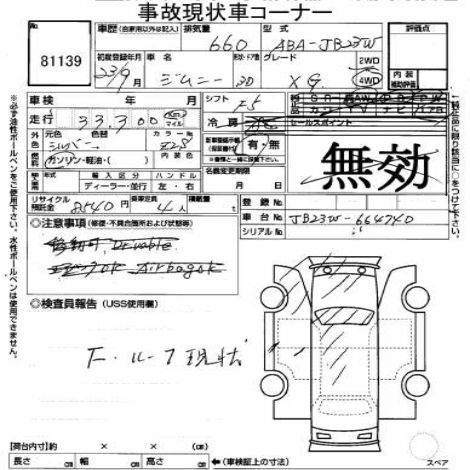 事故現状車コーナー
81139
車歴 (自家用以外は記入) 排気量 型式 評価点
660 ABA-JB23W
初度登録年月 車名 形状・ドア数 グレード 2WD
23/9 ジムニー 3D XG 4WD 内装 補助評価
車検 年 月 シフト F5
走行 33,300 Km マイル 冷房
セールスポイント
外色 元色 色替 カラーNo. 内装色
シルバー Z2S
燃料 ガソリン・軽油・( )
有・無
※書類と一緒に現車です。
無効
輸入区分 ハンドル 名義変更期限
ディーラー・並行 左・右 月 日
リサイクル預託金 8840 円 乗車定員 4人 積載量
登録No.
車台No. JB23W-664740
シリアルNo.
◎注意事項 (修復・不具合箇所および状態等)
移動可 Drivable
エアB ok Airbag ok
◎検査員報告 (USS使用欄)
F・ルーフ現状
【荷台内寸】 × ×
長さ cm 幅 cm 高さ cm ←(車検証上の寸法)
スペア
※必ず油性ボールペンをご使用下さい。水性ボールペンは使用できません。